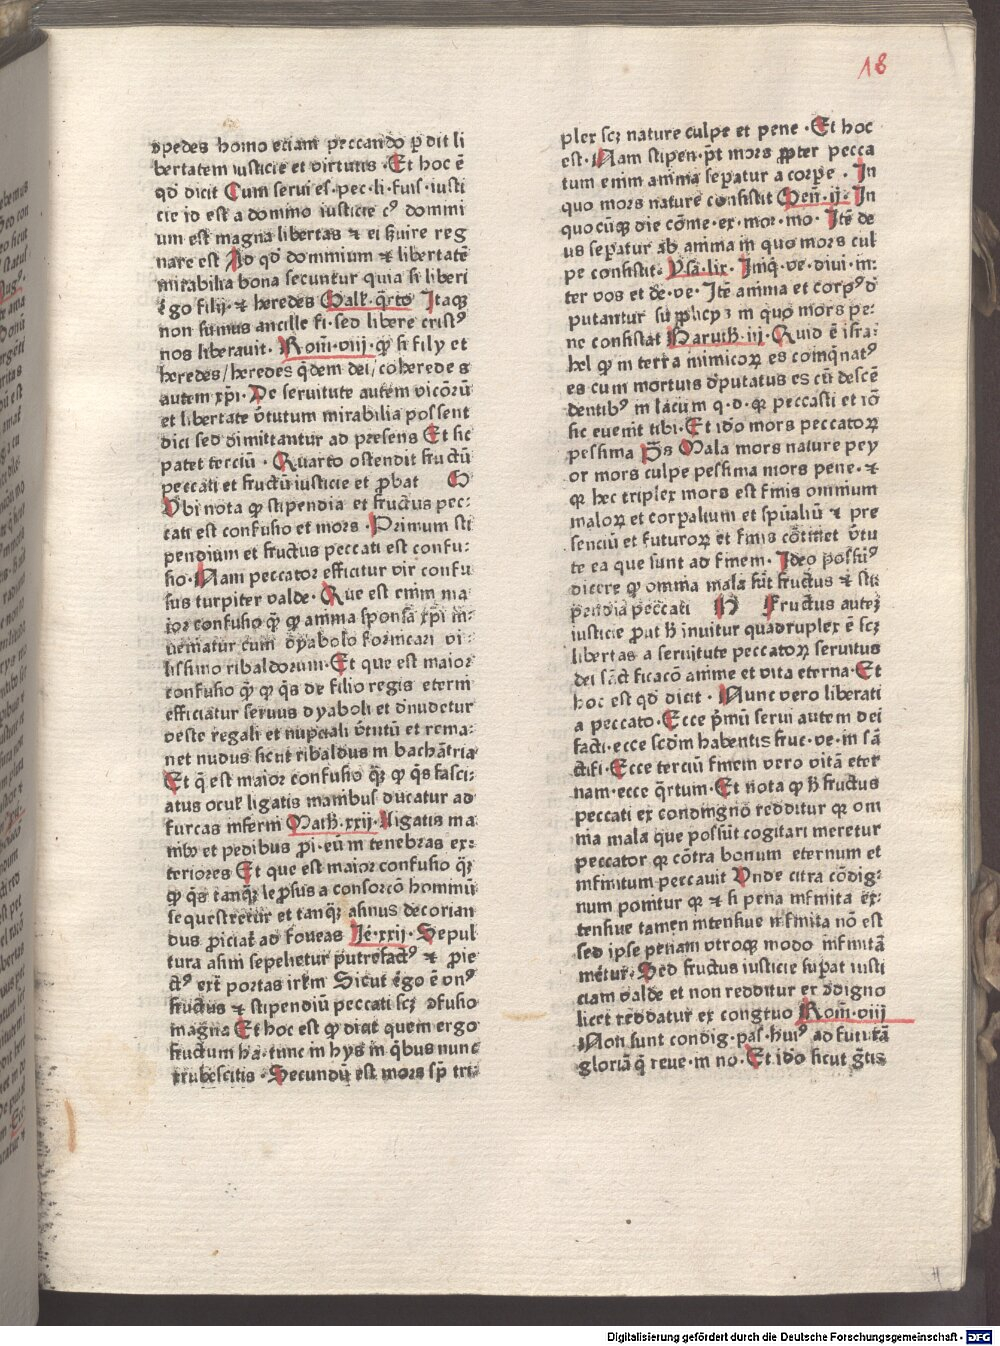 18
opedes homo eciam peccando ꝑdit li
bertatem iusticie et virtutis · Et hoc ē
qđ dicit Cum serui es·pec·li·fuis·iusti
cie id est a domino iusticie cꝰ domini
um est magna libertas ⁊ ei ẜuire reg
nare est Ad qđ dominium ⁊ libertatē
mirabilia bona secuntur quia si liberi
ergo filij ⁊ heredes Gall·q̄rto Itaqꝫ
non sumus ancille fi·sed libere cristꝰ
nos liberauit · Rom̄·viij·ꝙ si fily et
heredes/heredes q̄dem dei/coheredes
autem xp̄i·De seruitute autem vicōrū
et libertate v̄tutum mirabilia possent
dici sed dimittantur ad presens Et sic
patet terciū · Quarto ostendit fructū
peccati et fructū iusticie et ꝓbat G
Vbi nota ꝙ stipendia et fructus pec⸗
cati est confusio et mors·Primum sti
pendium et fructus peccati est confu⸗
sio·Nam peccator efficitur vir confu
sus turpiter valde·Que est enim ma
ior confusio q̄ꝫ ꝙ amma sponsa xp̄i in⸗
ueniatur cum dyabolo fornicari vi⸗
lissimo ribaldorum·Et que est maior
confusio q̄ꝫ ꝙ q̄s de filio regis eterni
efficiatur seruus dyaboli et dnudetur
veste regali et nupciali v̄tutū et rema⸗
net nudus sicut ribaldus in bachātria
Et q̄ est maior confusio q̄ꝫ ꝙ q̄s fasci⸗
atus oculꝭ ligatis manibus ducatur ad
furcas inferni Math·xxij·ligatis ma
nibꝰ et pedibus ꝓi·eū in tenebras ex⸗
teriores Et que est maior confusio q̄ꝫ
ꝙ q̄s tanq̄ꝫ leꝓsus a consorcō hominū
sequestretur et tanq̄ꝫ asinus decorian
dus ꝓiciat̄ ad foueas Je·xxij·Sepul
tura asini sepelietur putrefactꝰ ⁊ ꝓie
ctꝰ ext̄ portas irl̄m Sicut ergo ē vnꝰ
fructus ⁊ stipendiū peccati scꝫ ꝯfusio
magna Et hoc est ꝙ dicit quem ergo
fructum ha·tunc in hys in q̄bus nunc
erubescitis·Secundū est mors sꝫ tri⸗
plex scꝫ nature culpe et pene·Et hoc
est·Nam stipen·p̄t mors ꝓpter pecca
tum enim anima seꝑatur a corꝑe·In
quo mors nature consistit Gen̄·ij·In
quocūqꝫ die cōme·ex·mor·mo·Itē de
us seꝑatur ab anima in quo mors cul
pe consistit·Ysa·lix·Iniq̄·ve·diui·in⸗
ter vos et de·ve·Itē anima et corpꝰ d
putantur supplicyꝫ in quo mors pe⸗
ne consistat Baruch·iij·Quid ē isra⸗
hel ꝙ in terra inimicoꝝ es coinq̄natꝰ
es cum mortuis dputatus es cū descē
dentibꝰ in lacum q·d·qꝛ peccasti et iō
sic euenit tibi·Et ido mors peccatoꝝ
pessima p̄s Mala mors nature pey
or mors culpe pessima mors pene·⁊
qꝛ hec triplex mors est finis omnium
maloꝝ et corꝑalium et spūaliū ⁊ pre
senciū et futuroꝝ et finis cōtinet v̄tu
te ea que sunt ad finem·Ideo possūꝰ
dicere ꝙ omnia mala sūt fructus ⁊ sti
pendia peccati H Fructus auteꝫ
iusticie ꝓut h̄ inuitur quadruplex ē scꝫ
libertas a seruitute peccatoꝝ seruitus
dei sāctificacō anime et vita eterna·Et
hoc est qđ dicit·Nunc vero liberati
a peccato·Ecce p̄mū serui autem dei
facti·ecce scdm habentis fruc·ve·in sā
ctifi·Ecce terciū finem vero vitā eter
nam·ecce q̄rtum·Et nota ꝙ h̄ fructus
peccati ex condingno redditur qꝛ om
nia mala que possūt cogitari meretur
peccator qꝛ cōtra bonum eternum et
infinitum peccauit Vnde citra cōdig⸗
num ponitur qꝛ ⁊ si pena infinita ex⸗
tensiue tamen intensiue infinita nō est
sed ipse penam vtroqꝫ modo infinitā
meretur·Sed fructus iusticie suꝑat iusti
ciam valde et non redditur ex ꝯdigno
licet reddatur ex congruo Rom̄·viij
Non sunt condig·pas·huiꝰ ad futurā
gloriā q̄ reue·in no·Et ido sicut gātis
Digitalisierung gefördert durch die Deutsche Forschungsgemeinschaft - DFG